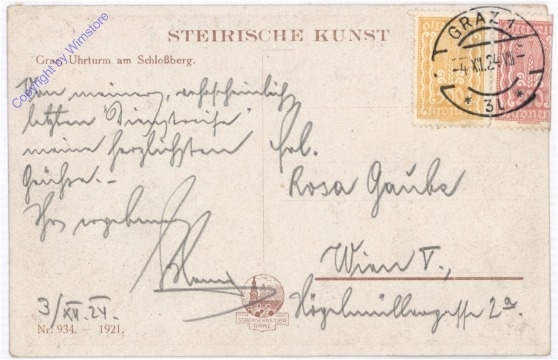 STEIRISCHE KUNST
Graz, Uhrturm am Schloßberg.
Copyright by Wimstore
GRAZ 1
-4.XII.24
* 3L *
Von meiner, wahrscheinlich
letzten "Dienstreise"
meine herzlichsten
Grüße.-
Ihr ergebener
3/XII.24.
Nr. 934. — 1921.
Frl.
Rosa Gaube
Wien V.,
Kögelmüllergasse 2a.
GRAZ